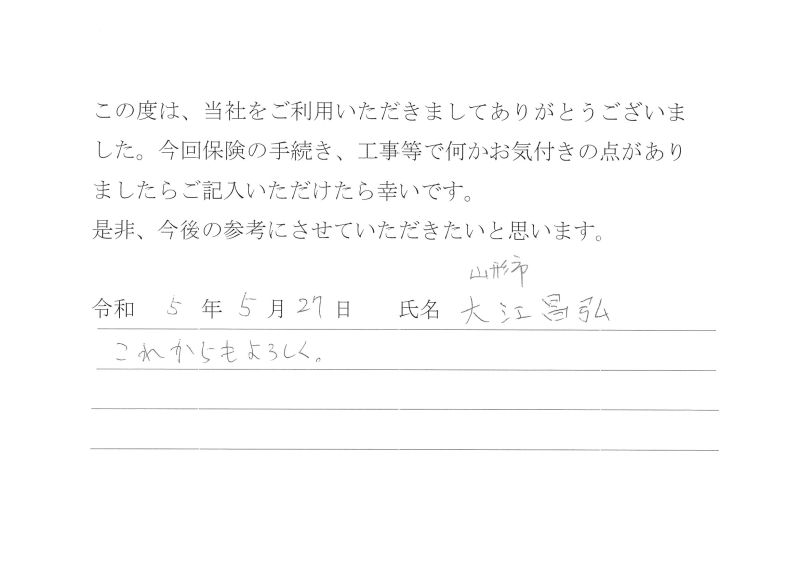 この度は、当社をご利用いただきましてありがとうございま
した。今回保険の手続き、工事等で何かお気付きの点があり
ましたらご記入いただけたら幸いです。
是非、今後の参考にさせていただきたいと思います。
山形市
令和 5 年 5 月 27 日 氏名 大江昌弘
これからもよろしく。